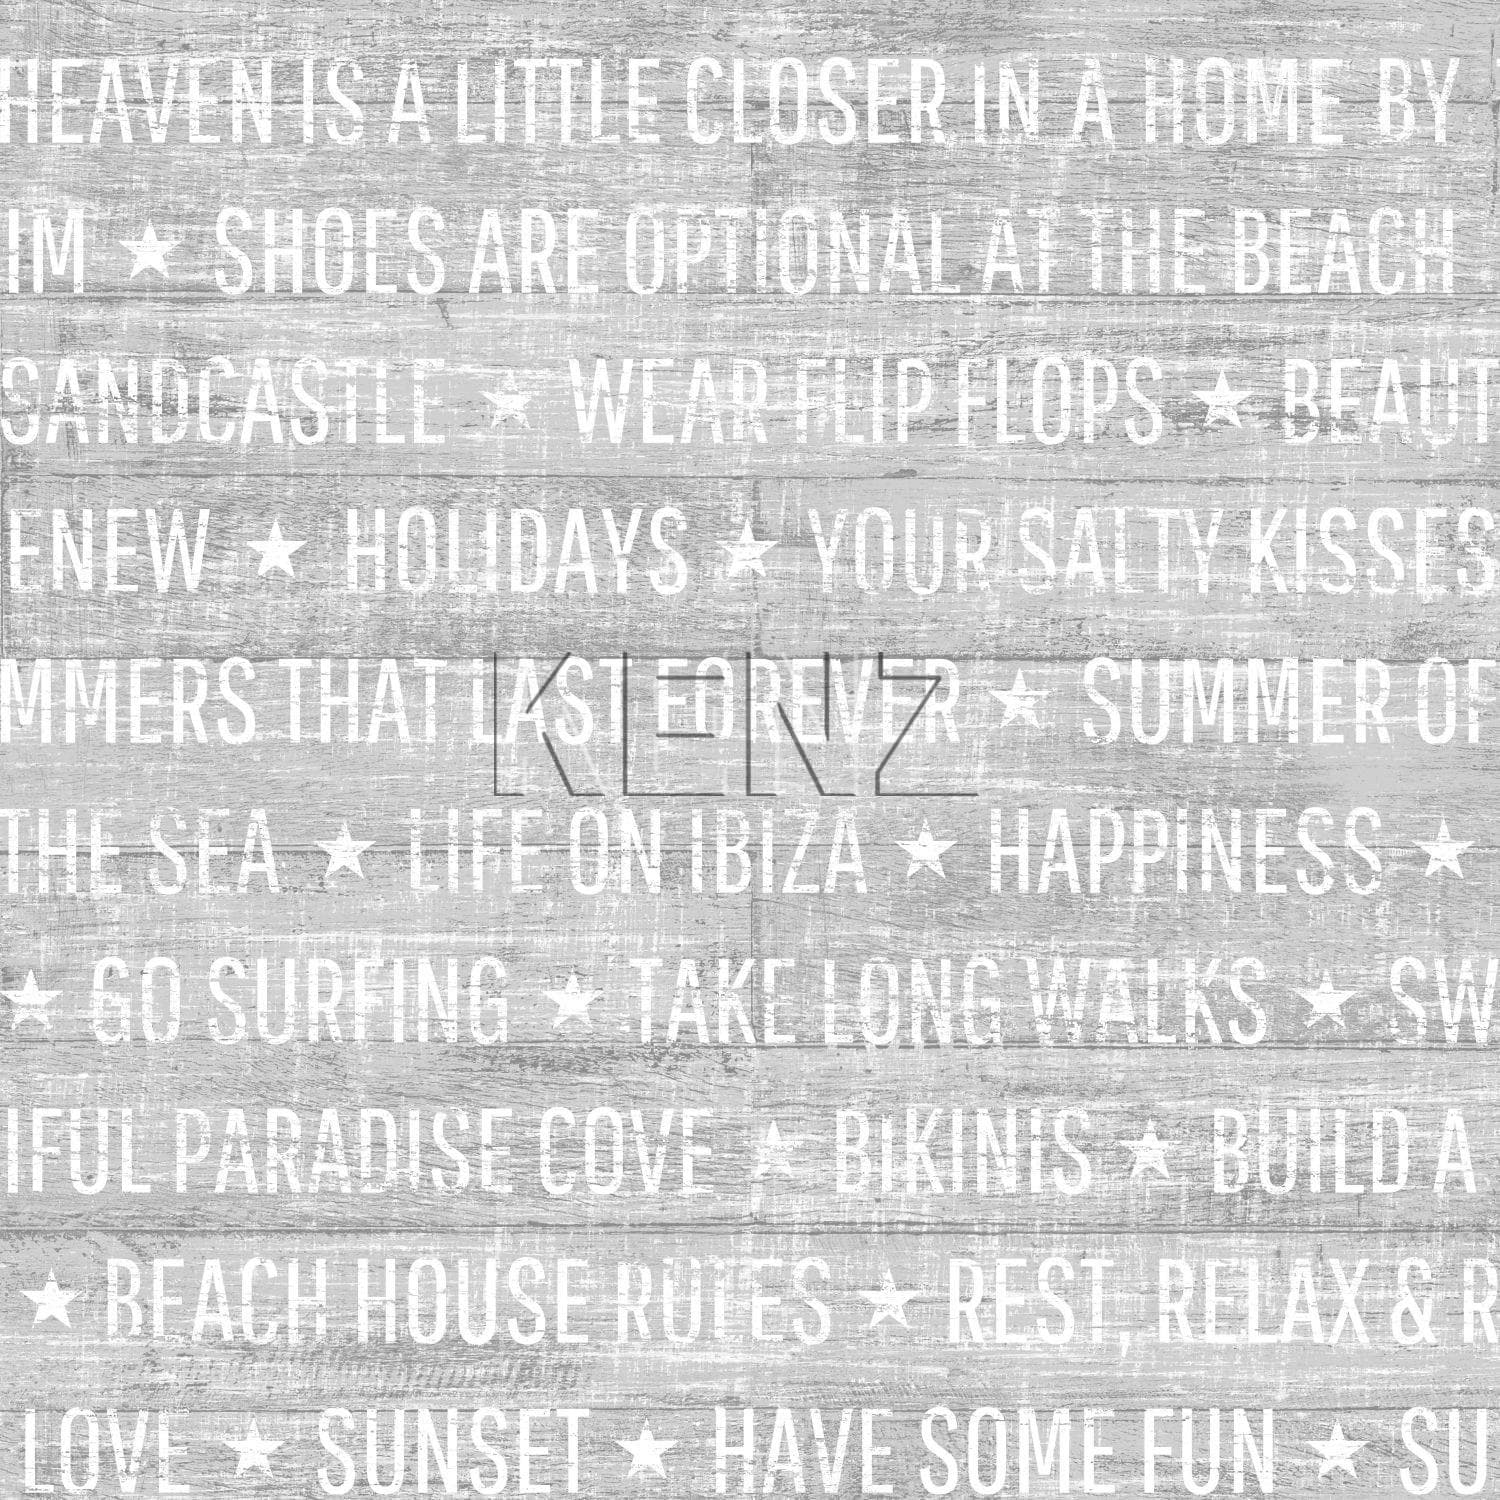 HEAVEN IS A LITTLE CLOSER IN A HOME BY
IM ★ SHOES ARE OPTIONAL AT THE BEACH
SANDCASTLE ★ WEAR FLIP FLOPS ★ BEAUT
ENEW ★ HOLIDAYS ★ YOUR SALTY KISSES
MMERS THAT LAST FOREVER ★ SUMMER OF
KENZ
THE SEA ★ LIFE ON IBIZA ★ HAPPINESS ★
★ GO SURFING ★ TAKE LONG WALKS ★ SW
IFUL PARADISE COVE ★ BIKINIS ★ BUILD A
★ BEACH HOUSE RULES ★ REST, RELAX & R
LOVE ★ SUNSET ★ HAVE SOME FUN ★ SU